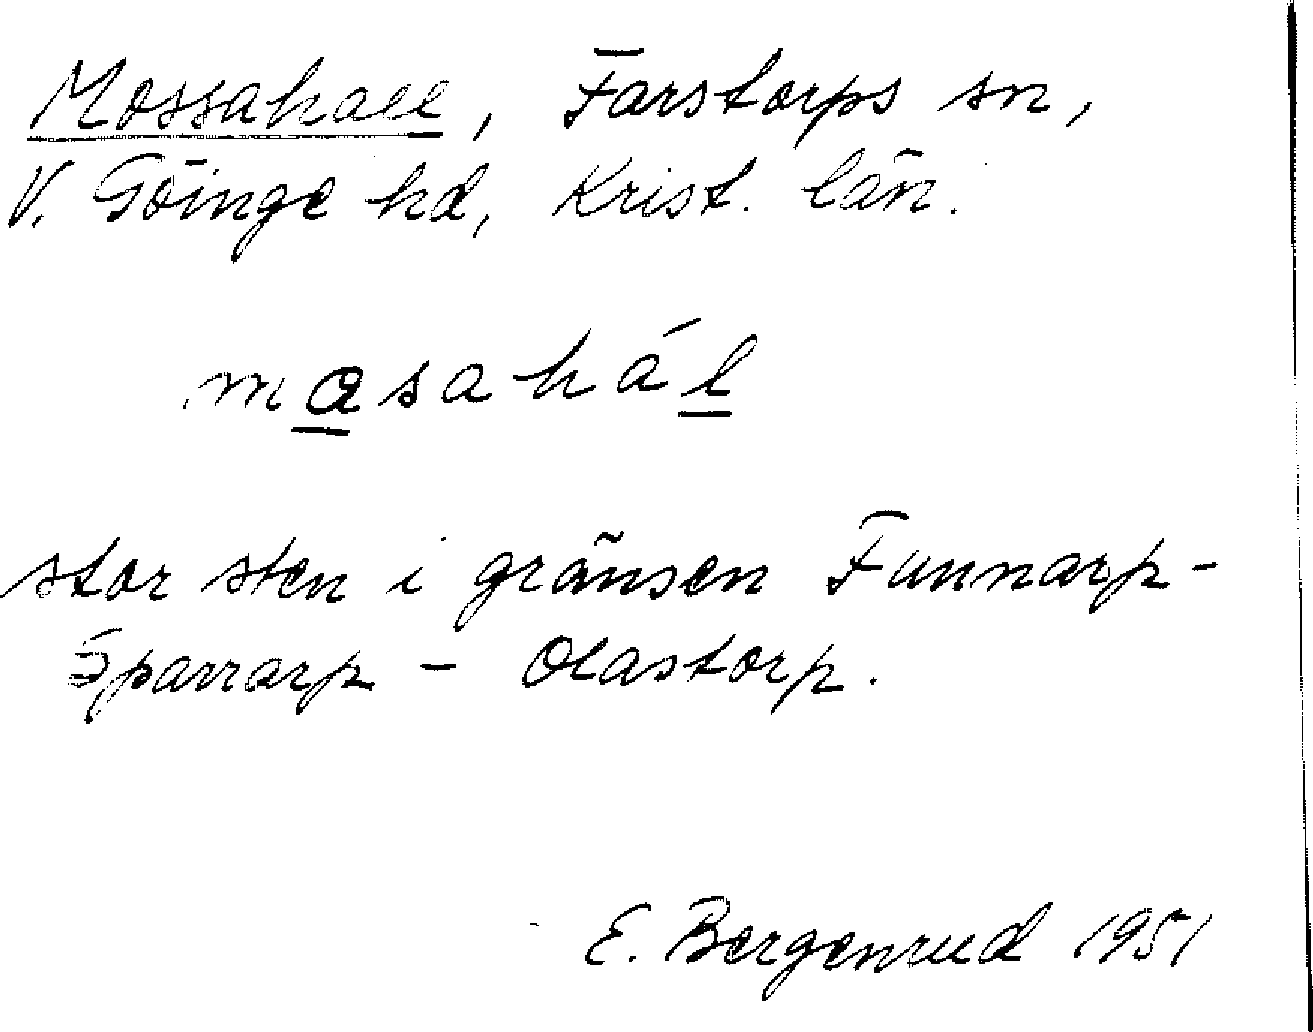 Mossahall, Farstorps sn,
V. Göinge hd, Krist. län.
masahál
stor sten i gränsen Funnarp-
Sparrarp - Olastorp.
E. Bergenrud 1951